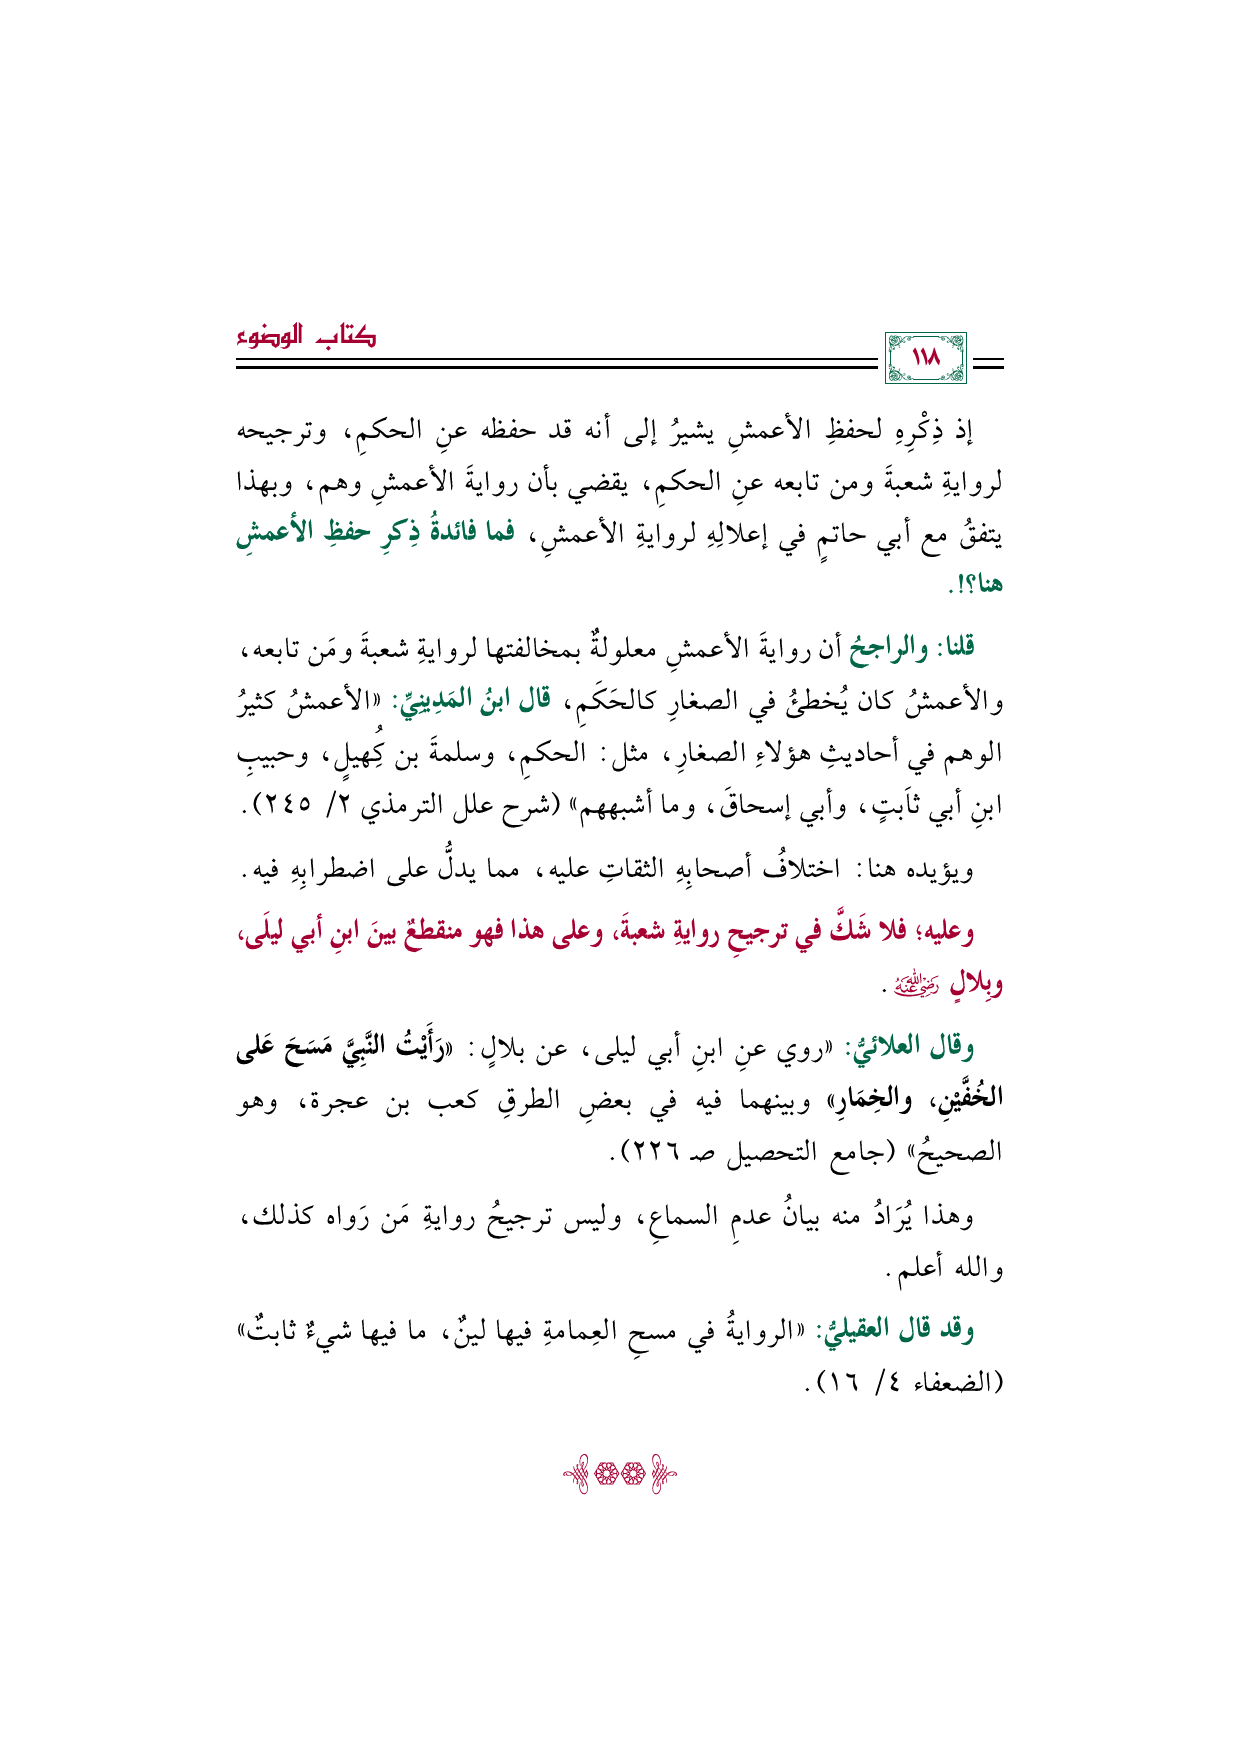 كتاب الوضوء
١١٨
إذ ذِكْرِهِ لحفظِ الأعمشِ يشيرُ إلى أنه قد حفظه عنِ الحكمِ، وترجيحه
لروايةِ شعبةَ ومن تابعه عنِ الحكمِ، يقضي بأن روايةَ الأعمشِ وهم، وبهذا
يتفقُ مع أبي حاتمٍ في إعلالِهِ لروايةِ الأعمشِ، فما فائدةُ ذِكرِ حفظِ الأعمشِ
هنا؟!.
قلنا: والراجحُ أن روايةَ الأعمشِ معلولةٌ بمخالفتها لروايةِ شعبةَ ومَن تابعه،
والأعمشُ كان يُخطئُ في الصغارِ كالحَكَمِ، قال ابنُ المَدِينِيِّ: «الأعمشُ كثيرُ
الوهم في أحاديثِ هؤلاءِ الصغارِ، مثل: الحكمِ، وسلمةَ بن كُهيلٍ، وحبيبِ
ابنِ أبي ثاَبتٍ، وأبي إسحاقَ، وما أشبههم» (شرح علل الترمذي ٢/ ٢٤٥).
ويؤيده هنا: اختلافُ أصحابِهِ الثقاتِ عليه، مما يدلُّ على اضطرابِهِ فيه.
وعليه؛ فلا شَكَّ في ترجيحِ روايةِ شعبةَ، وعلى هذا فهو منقطعٌ بينَ ابنِ أبي ليلَى،
وبِلالٍ رضي الله عنه.
وقال العلائيُّ: «روي عنِ ابنِ أبي ليلى، عن بلالٍ: «رَأَيْتُ النَّبِيَّ مَسَحَ عَلى
الخُفَّيْنِ، والخِمَارِ» وبينهما فيه في بعضِ الطرقِ كعب بن عجرة، وهو
الصحيحُ» (جامع التحصيل صـ ٢٢٦).
وهذا يُرَادُ منه بيانُ عدمِ السماعِ، وليس ترجيحُ روايةِ مَن رَواه كذلك،
والله أعلم.
وقد قال العقيليُّ: «الروايةُ في مسحِ العِمامةِ فيها لينٌ، ما فيها شيءٌ ثابتٌ»
(الضعفاء ٤/ ١٦).